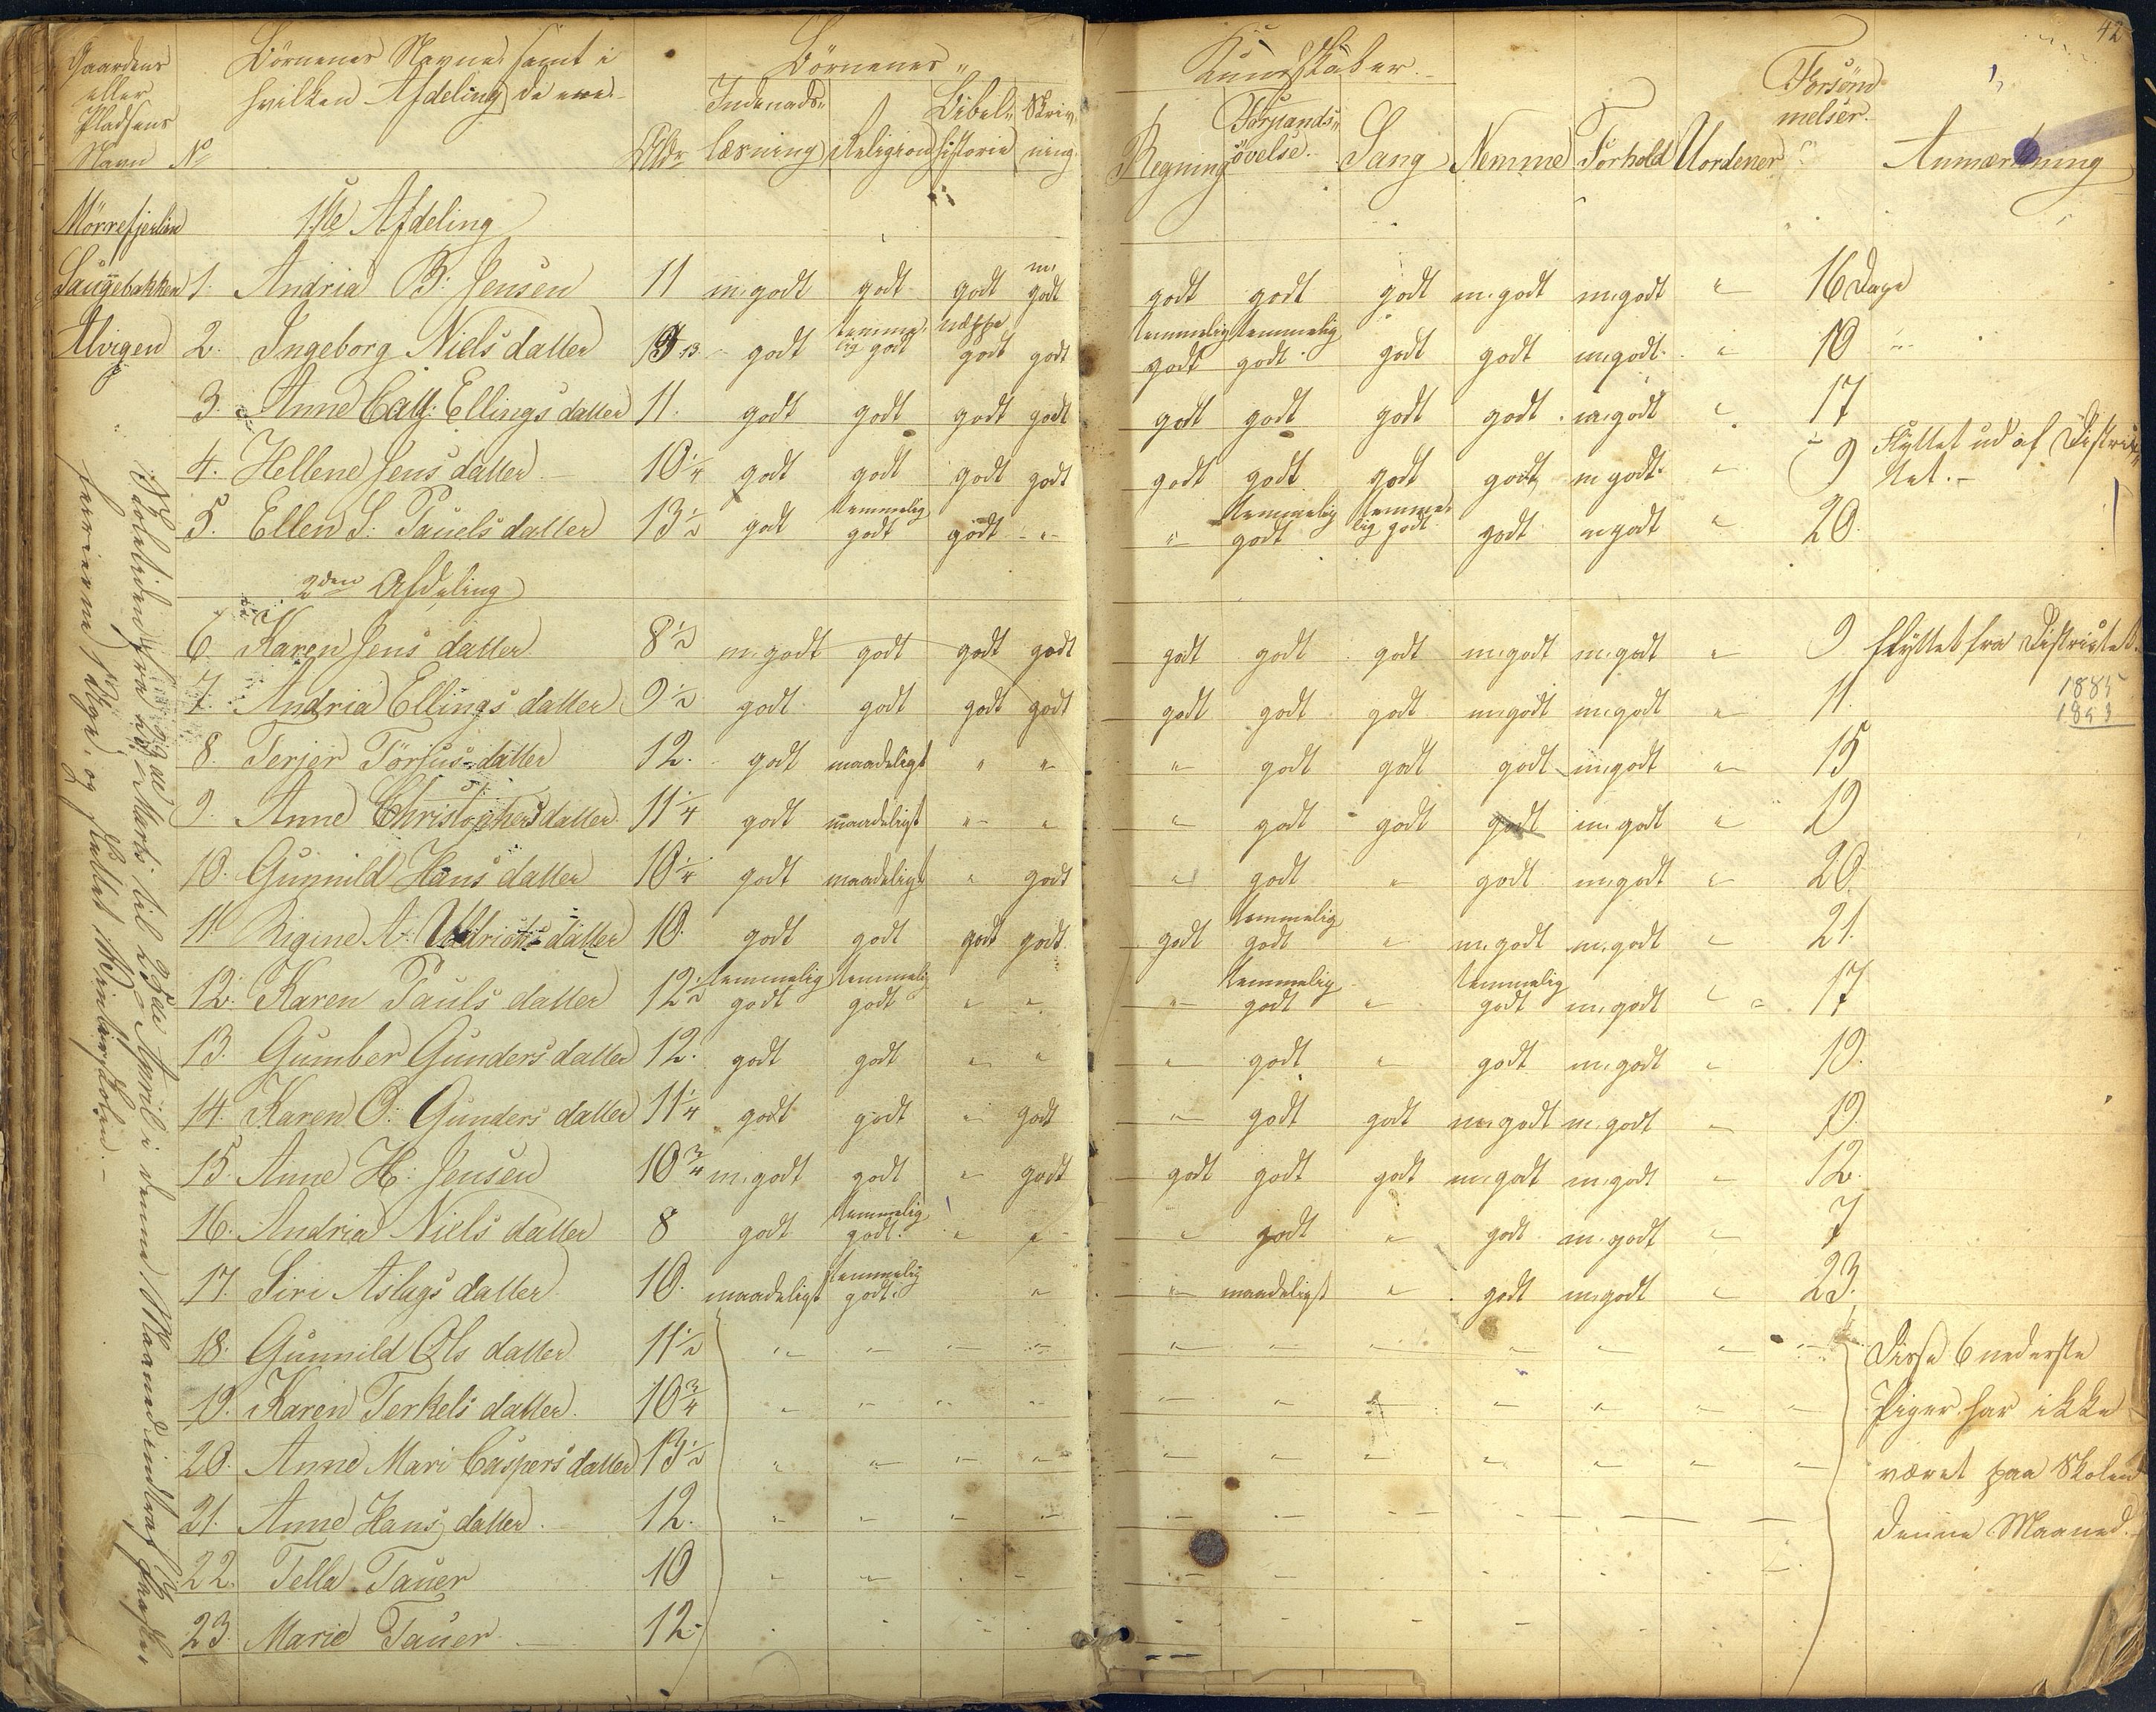 42
Gaardens eller Pladsens Navn | No | Børnenes Navne samt i hvilken Afdeling de ere. | Alder | Børnenes „ Kundskaber.
Indenadslæsning | Religion | Bibelhistorie | Skrivning | Regning | Forstandsøvelse. | Sang | Nemme | Forhold | Uordener | Forsømmelser. | Anmærkning
Mörrefjerlien 1ste Afdeling
Saugebakken 1. Andria B. Jensen 11 m. godt godt godt m. godt godt godt godt m. godt m. godt " 16 Dage
Alvigen 2. Ingeborg Niels datter 13 godt temmelig godt næppe godt godt temmelig godt temmelig godt godt godt m. godt " 10 "
3. Anne Cath: Ellings datter 11. godt godt godt godt godt godt godt godt m. godt " 17
4. Hellene Jens datter 10 1/4 godt godt godt godt godt godt godt godt m. godt " 9 Flyttet ud af Distriktet.
5. Ellen S: Pauels datter 13 1/2 godt temmelig godt godt " " temmelig godt temmelig godt godt m. godt " 20.
2den Afdeling
6 Karen Jens datter 8 1/2 m. godt godt godt godt godt godt godt m. godt m. godt " 9 flyttet fra Distriktet.
7. Andria Ellings datter 9 1/2 godt godt godt godt godt godt godt m. godt m. godt " 11.
1885
8. Terjer Törjus datter 12. godt maadeligt " " " godt godt godt m. godt " 15
9. Anne Christophers datter 11 1/4 godt maadeligt " " " godt godt godt m. godt " 19
10. Gunnild Hans datter 10 1/4 godt maadeligt " godt " godt " godt m. godt " 20.
11. Rigine A. datter 10. godt godt godt godt godt temmelig godt " m. godt m. godt " 21.
12. Karen Pauls datter 12 1/2 temmelig godt temmelig godt " " " temmelig godt " temmelig godt m. godt " " 17
13. Gumber Gunders datter 12. godt godt " " " godt " godt m. godt " 19.
14. Karen O. Gunders datter 11 1/4 godt godt " godt " godt godt m. godt m. godt " 19.
15. Anne H. Jensen 10 3/4 m. godt godt " godt godt godt godt m. godt m. godt " 12.
16. Andria Niels datter 8 godt temmelig godt. " " " godt " godt m. godt " 7
17. Siri Aslags datter 10. maadeligt temmelig godt. " " maadeligt " godt m. godt " 23.
18. Gunnild Ols datter 11 1/2 " " " " " " " " " " " Disse 6 nederste
19. Karen Terkels datter. 10 3/4 " " " " " " " " " " " Piger har ikke
20. Anne Mari Caspers datter 13 1/2 " " " " " " " " " " " været paa Skolen
21. Anne Hans datter. 12. " " " " denne Maaned.
22. Tella Tauer 10 " " " "
23. Marie Tauer 12.
Skoletiden fra Marts til 23de April i denne Maaned indtraf Paaske
ferierne 1 Uge, og sluttet Skolen.